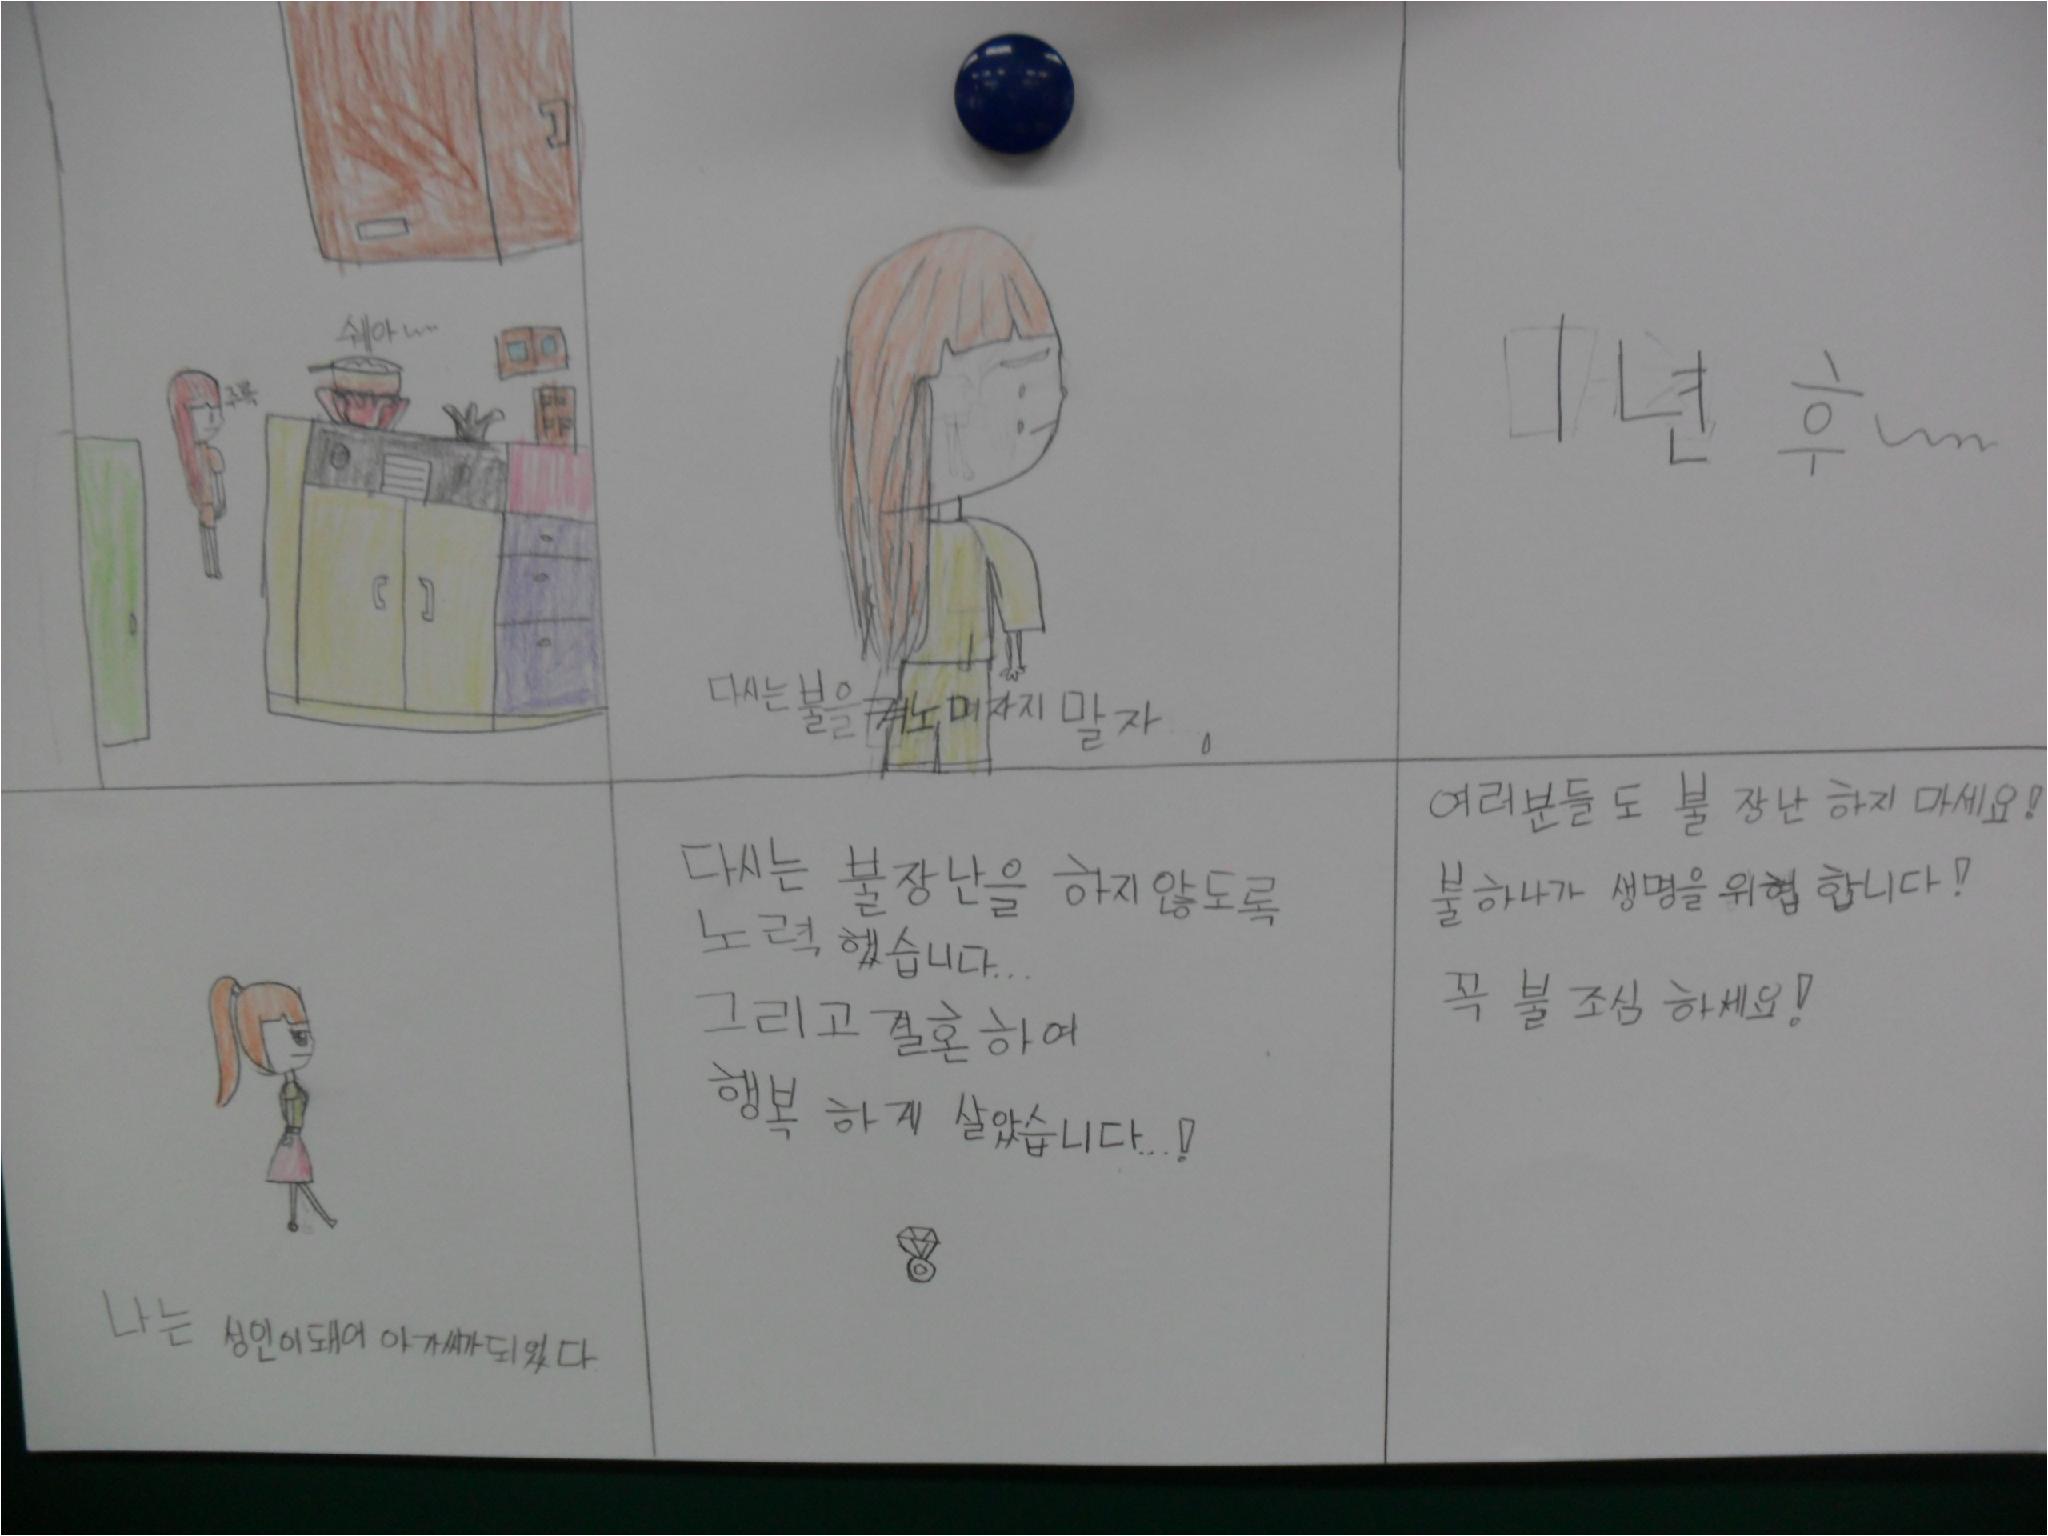 쉐아~
주륵
다시는 불을 켜노며자지 말자..
1년 후~
나는 성인이돼어 아가씨가되었다
다시는 불장난을 하지않도록
노력 했습니다...
그리고 결혼하여
행복 하게 살았습니다...!
여러분들도 불 장난 하지 마세요!
불하나가 생명을 위협 합니다!
꼭 불 조심 하세요!